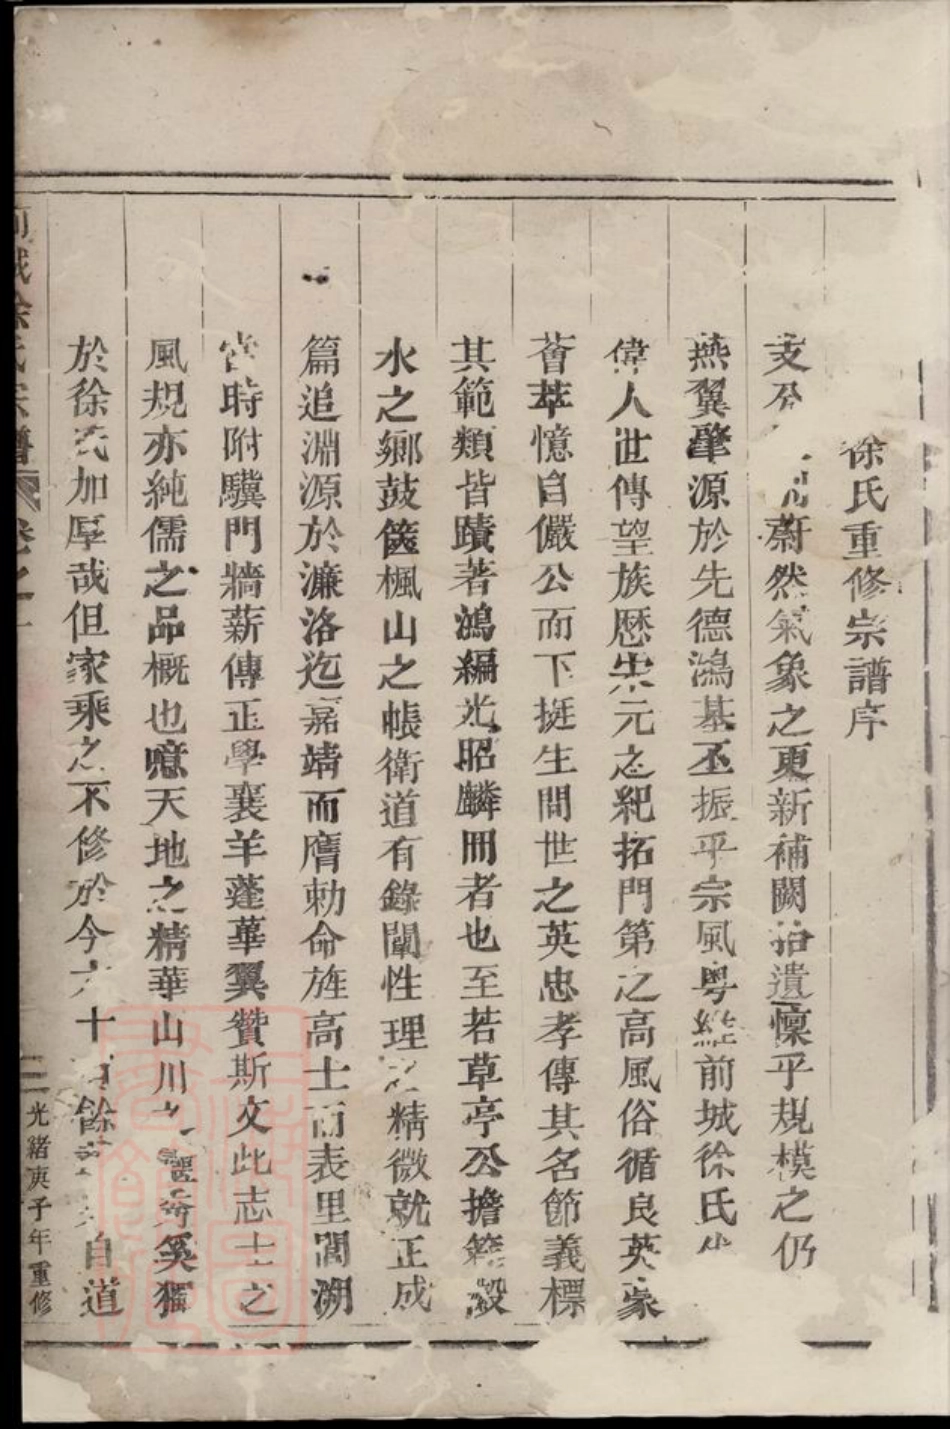 徐氏重修宗譜序
支分蔚然氣象之更新補闕拾遺懍乎規模之仍
燕翼肇源於先德鴻基丕振乎宗風粵維前城徐氏
偉人世傳望族歷宋元之紀拓門第之高風俗循良英豪
薈萃憶自儼公而下挺生間世之英忠孝傳其名節義標
其範類皆蹟著鴻編光昭麟冊者也至若草亭公擔簦瀔
水之鄉鼓篋楓山之帳衛道有錄闡性理之精微就正成
篇追淵源於濂洛迄嘉靖而膺勅命旌高士而表里閭溯
當時附驥門牆薪傳正學襄羊蓬蓽翼贊斯文此志士之
風規亦純儒之品概也噫天地之精華山川之靈秀奚獨
於徐氏加厚哉但家乘之不修於今六十餘自道
前城徐氏宗譜 卷之一
二 光緒庚子年重修